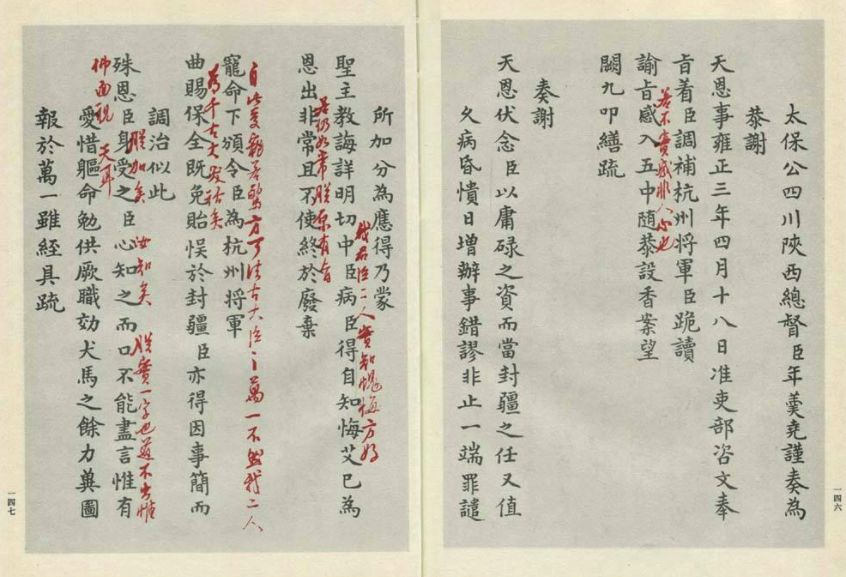 太保公四川陝西總督臣年羹堯謹奏為
恭謝
天恩事雍正三年四月十八日准吏部咨文奉
旨着臣調補杭州將軍臣跪讀
若不實感非人心也
諭旨感入五中随恭設香案望
闕九叩繕疏
奏謝
天恩伏念臣以庸碌之資而當封疆之任又值
久病昏憒日增辦事錯謬非止一端罪譴
一四六
所加分為應得乃蒙
我君臣二人實知愧悔方好
聖主教誨詳明切中臣病臣得自知悔艾已為
若仍如常朕原有旨
恩出非常且不使終於廢棄
方可法古大臣之萬一不然我二人
寵命下頒令臣為杭州將軍
為千古大笑話矣
曲賜保全既免貽悞於封疆臣亦得因事簡而
調治似此
朕加矣 汝知矣 朕實一字也道不出惟
殊恩臣身受之臣心知之而口不能盡言惟有
天耳
愛惜軀命勉供厥職効犬馬之餘力冀圖
報於萬一雖經具疏
一四七